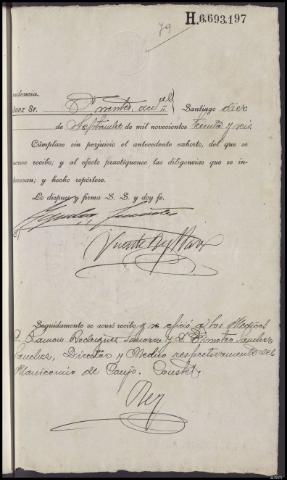 79
H.6.693.197
videncia.
Juez Sr. Santiago diez
de Septiembre de mil novecientos treinta y seis
Cúmplase sin perjuicio el antecedente exhorto, del que se
acuse recibo; y al efecto practíquense las diligencias que se in-
teresan; y hecho repórtese.
Lo dispuso y firma S. S. y doy fe.
Vicente Rey
Seguidamente se acusó recibo y se ofició a los Médicos
D. Ramon Rodriguez y D. Timoteo Sanchez
Sanchez, Director y Medico respectivamente del
Manicomio de Conjo. Doy fe
Rey